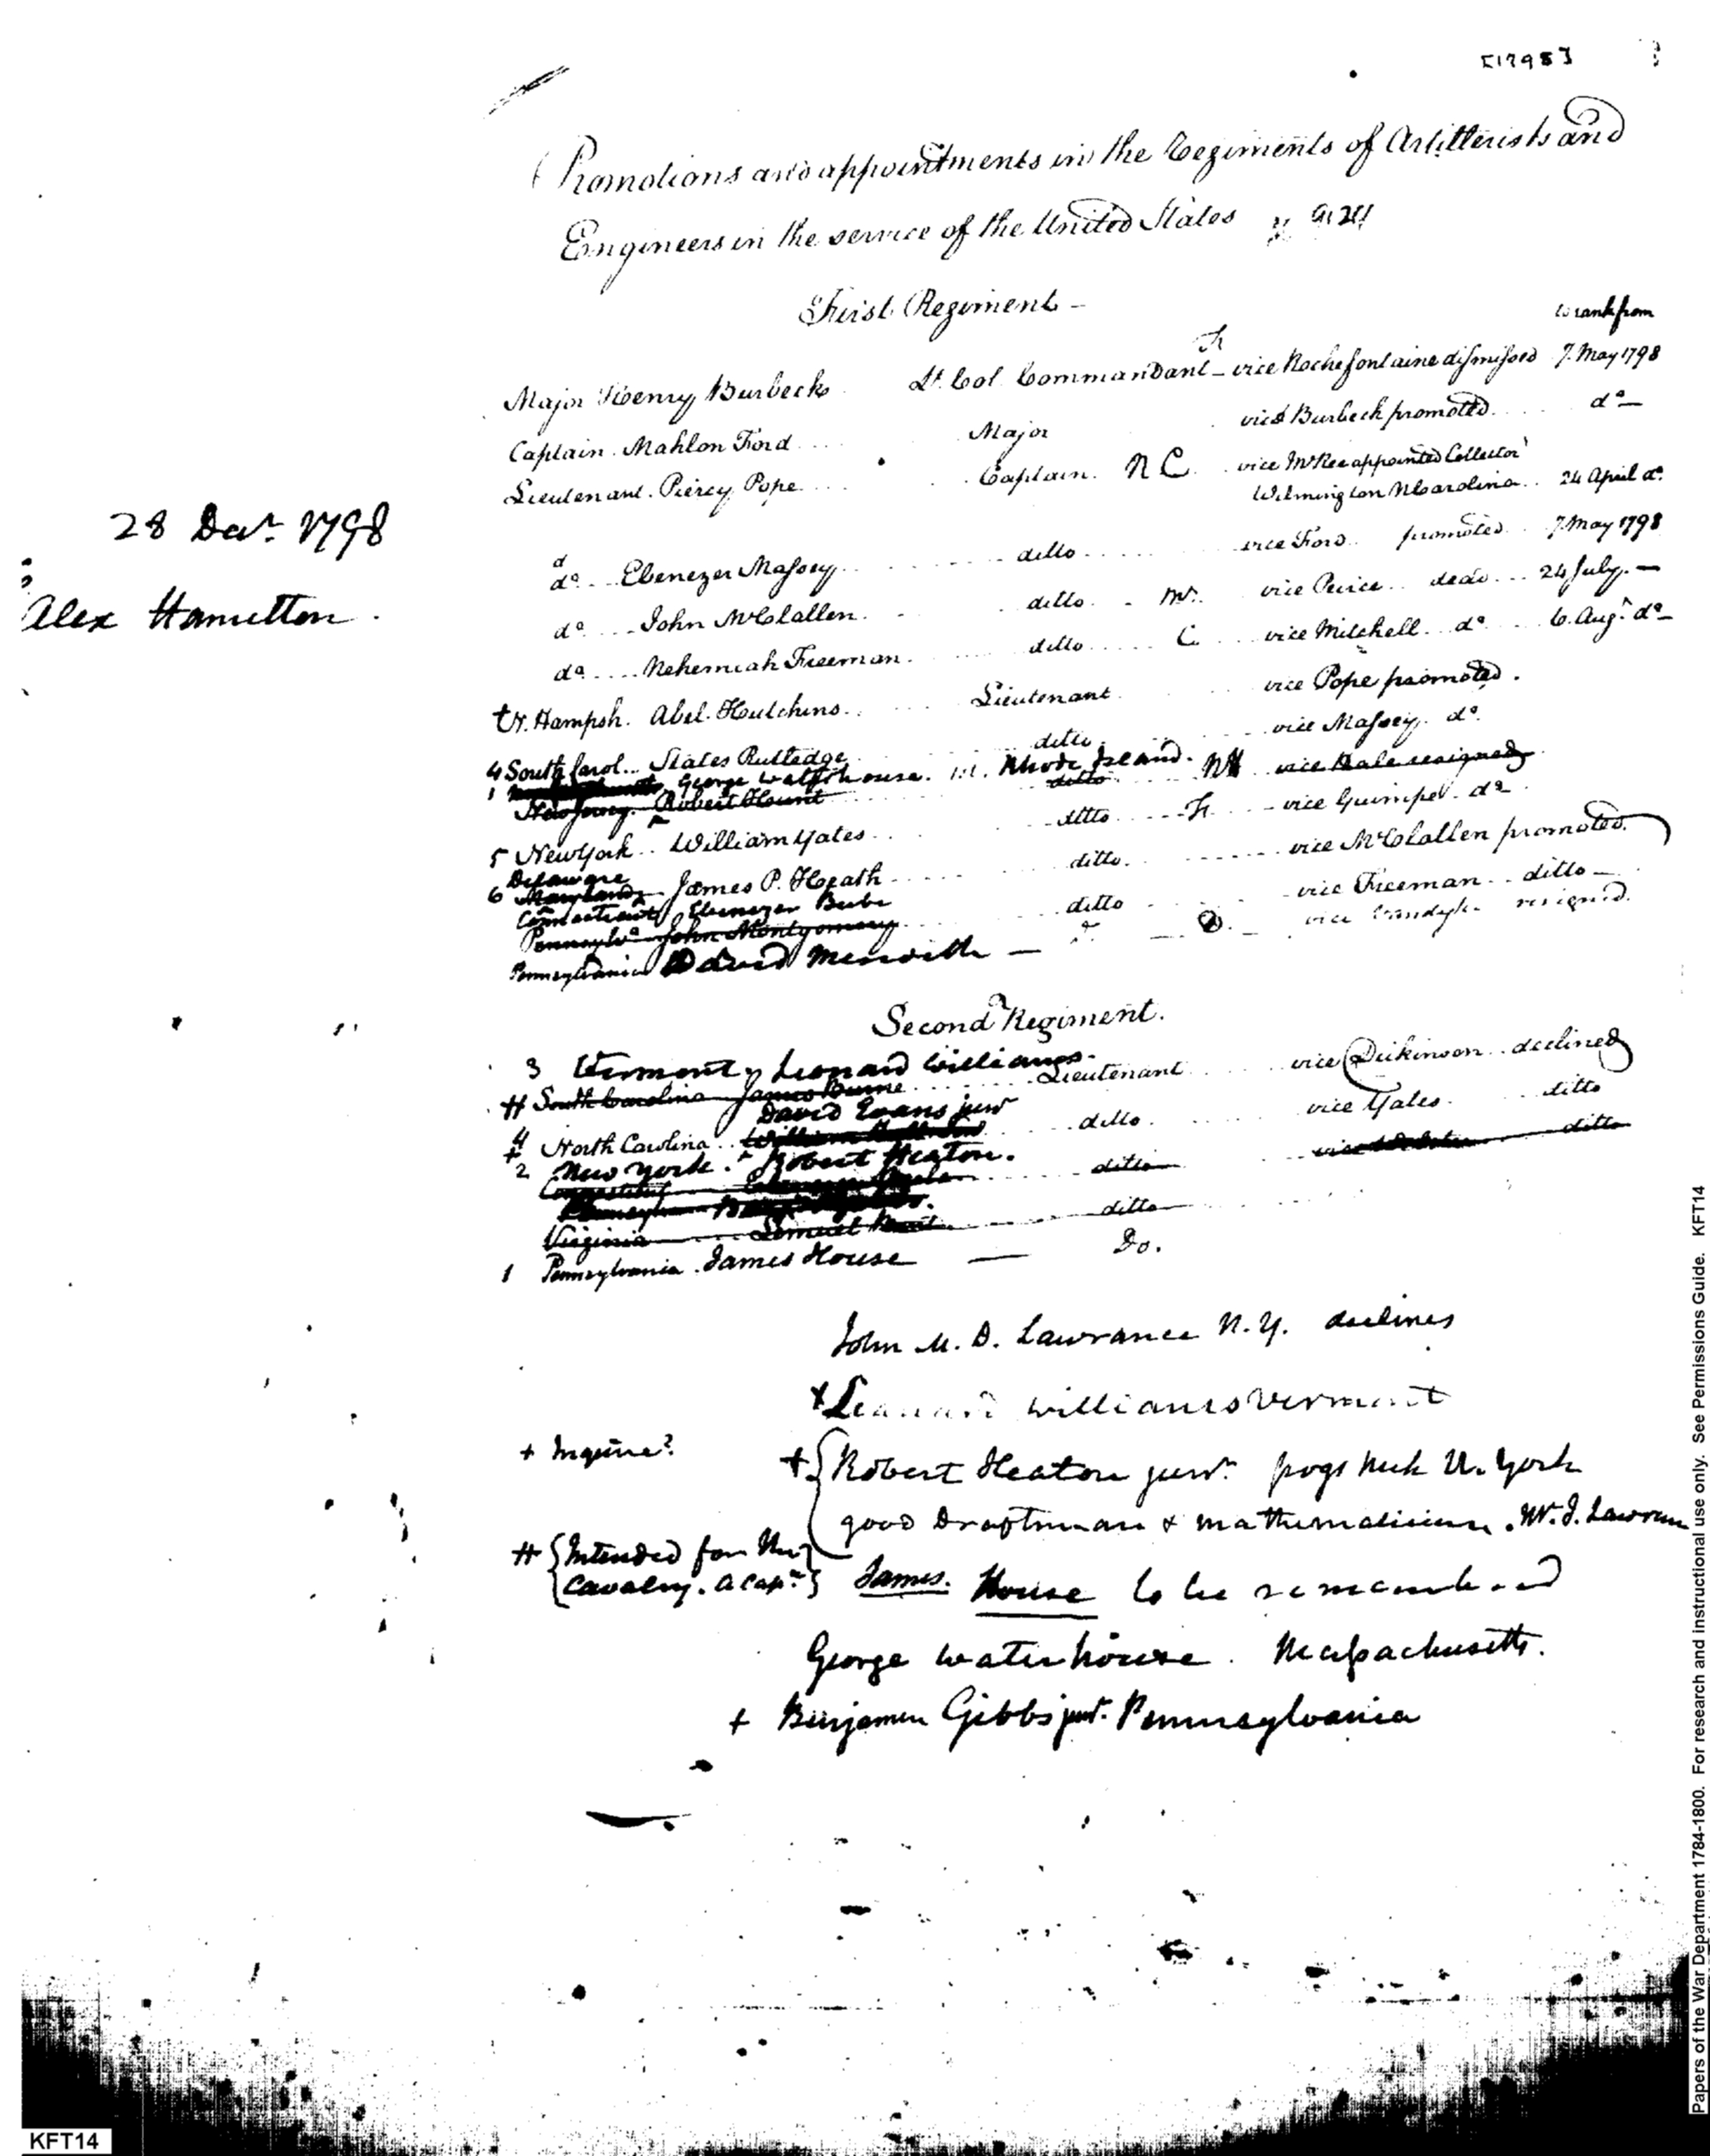 [1798]
Promotions and appointments in the Regiments of Artillerists and
Engineers in the service of the United States
First Regiment -
to rank from
Major Henry Burbeck Lt. Col. Commandant - vice Rochefontaine dismissed 7. May 1798
Captain. Mahlon Ford Major vice Burbeck promoted do
Lieutenant. Piercy Pope Captain. N C. vice McRee appointed Collector
Wilmington N Carolina 24 April do.
28 Decr. 1798
do Ebenezer Massey ditto vice Ford promoted 7. May 1798
Alex Hamilton.
do John McClallen. ditto vice Peirce dead 24 July. -
do Nehemiah Freeman. ditto C. vice Mitchell do 6. Augt. do
N. Hampsh. Abel Hutchins Lieutenant vice Pope promoted.
4 South Carol. States Rutledge ditto vice Massey. do.
1 George Waterhouse. Rhode Island. vice Hale resigned
New Jersey. Robert Hunt ditto
5 New York William Yates ditto vice Guimpé do
Delaware
6 Maryland James P. Heath ditto. vice McClallen promoted.
Connecticut Ebenezer Beebe ditto vice Freeman ditto
Pennsylva John Montgomery vice Vandyke resigned.
Pennsylvania David Meredith -
Second Regiment.
3 Vermont Leonard Williams.
# South Carolina James Burne Lieutenant vice Dickinson declined
David Evans junr
4 North Carolina ditto. vice Yates ditto
2 New York. Robert Heaton.
Connecticut ditto ditto
Virginia Lemuel ditto
1 Pennsylvania. James House - Do.
John M. D. Lawrance N. Y. declines
+ Leonard Williams Vermont
+ Inquire?
+ { Robert Heaton junr. frogs Neck N. York
good Draftsman & mathematician. Mr. J. Lawrence
# { Intended for the
Cavalry. a Capn. } James. House to be remembered
George Waterhouse. Massachusetts.
+ Benjamin Gibbs junr. Pennsylvania
Papers of the War Department 1784-1800. For research and instructional use only. See Permissions Guide. KFT14
KFT14